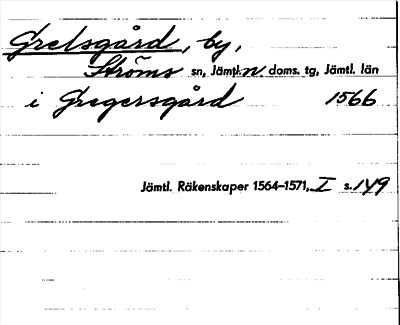 Grelsgård, by,
Ströms sn, Jämtl. n doms. tg, Jämtl. län
i Gregersgård 1566
Jämtl. Räkenskaper 1564–1571, I s. 149